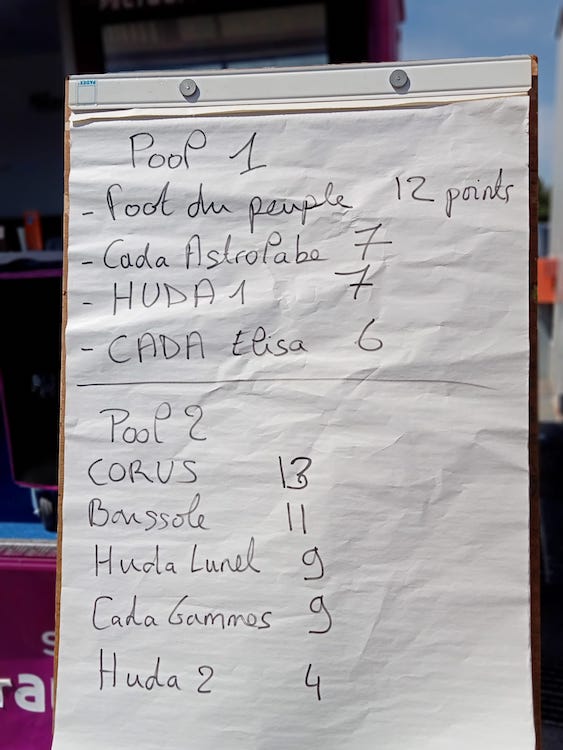 Pool 1
- foot du peuple 12 points
- Cada Astrolabe 7
- HUDA 1 7
- CADA Elisa 6
Pool 2
CORUS 13
Boussole 11
Huda Lunel 9
Cada Gammes 9
Huda 2 4